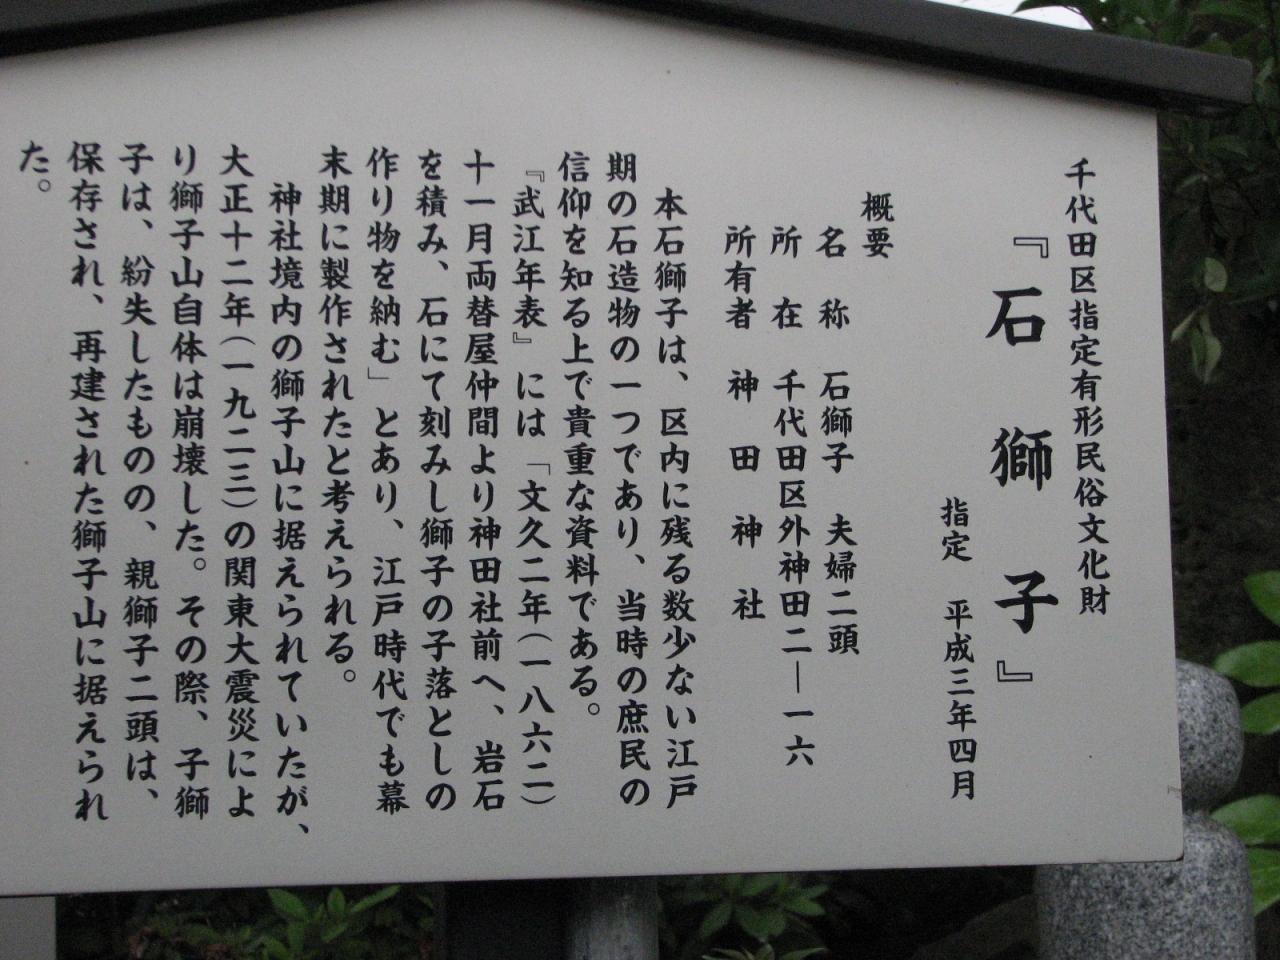 千代田区指定有形民俗文化財
『石獅子』
指定 平成三年四月
概要
名称 石獅子 夫婦二頭
所在 千代田区外神田二―一六
所有者 神田神社
本石獅子は、区内に残る数少ない江戸
期の石造物の一つであり、当時の庶民の
信仰を知る上で貴重な資料である。
『武江年表』には「文久二年(一八六二)
十一月両替屋仲間より神田社前へ、岩石
を積み、石にて刻みし獅子の子落としの
作り物を納む」とあり、江戸時代でも幕
末期に製作されたと考えられる。
神社境内の獅子山に据えられていたが、
大正十二年(一九二三)の関東大震災によ
り獅子山自体は崩壊した。その際、子獅
子は、紛失したものの、親獅子二頭は、
保存され、再建された獅子山に据えられ
た。